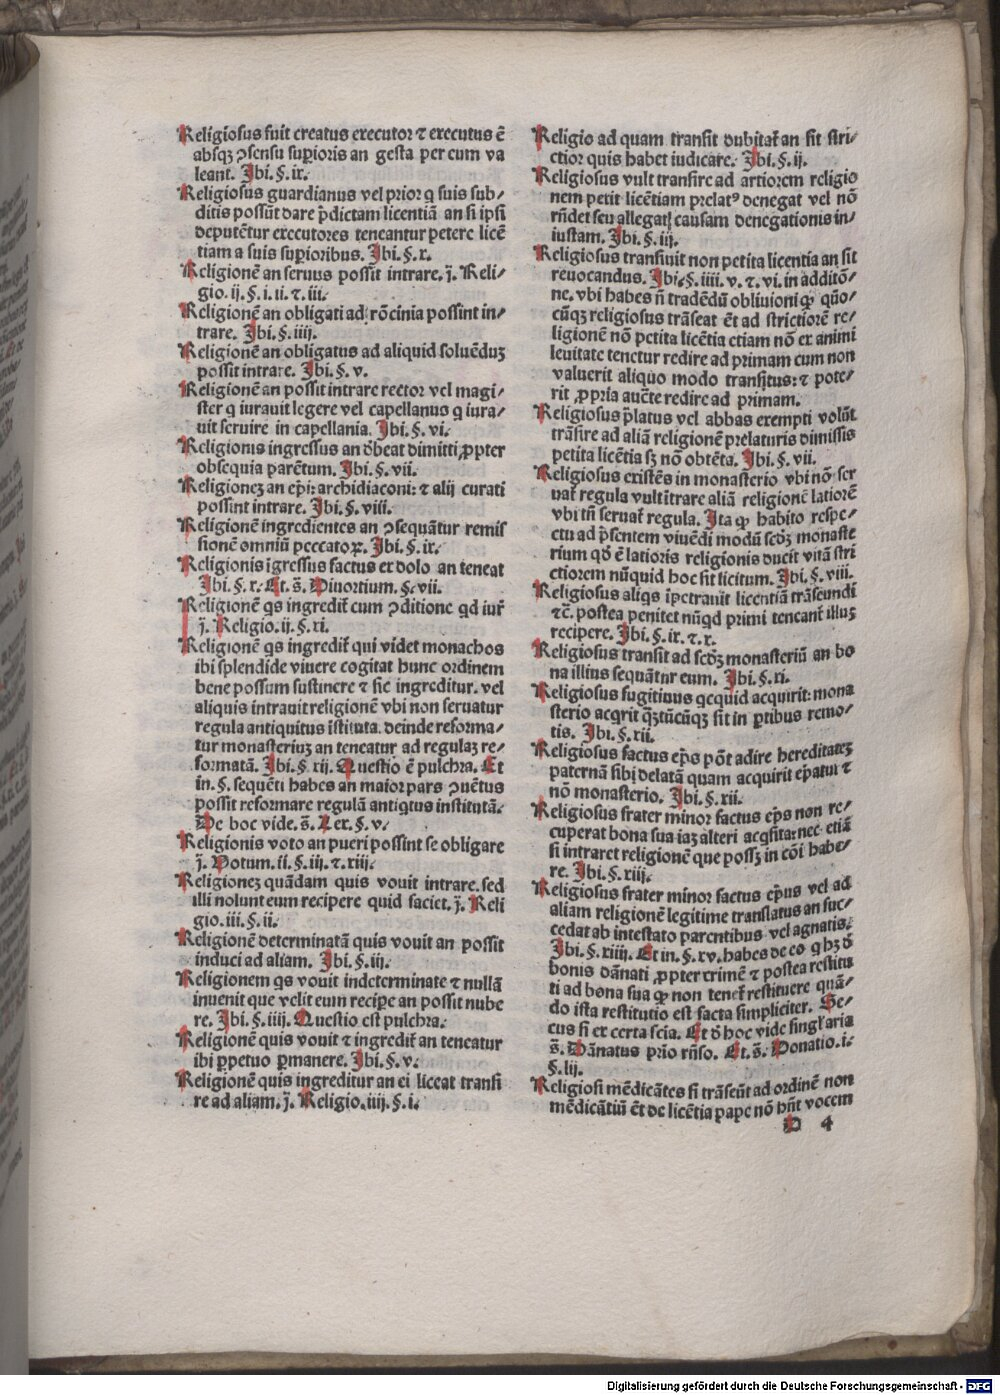 Religiosus fuit creatus executor ⁊ executus ē
absqꝫ ꝯsensu suꝑioris an gesta per eum va
leant. Ibi. §. ix.
Religiosus guardianus vel prior q̇ suis sub/
ditis possūt dare p̄dictam licentiā an si ipsi
deputētur executores teneantur petere licē
tiam a suis suꝑioribus. Ibi. §. x.
Religionē an seruus possit intrare. j̄. Reli/
gio. ij. §. i. ii. ⁊. iii.
Religionē an obligati ad rōcinia possint in/
trare. Ibi. §. iiij.
Religionē an obligatus ad aliquid soluēduꝫ
possit intrare. Ibi. §. v.
Religionē an possit intrare rector vel magi/
ster q̇ iurauit legere vel capellanus q̇ iura/
uit seruire in capellania. Ibi. §. vi.
Religionis ingressus an d̄beat dimitti ꝓpter
obsequia parētum. Ibi. §. vii.
Religioneꝫ an ep̄i: archidiaconi: ⁊ alij curati
possint intrare. Ibi. §. viii.
Religionē ingredientes an ꝯsequātur remis
sionē omniū peccatoꝝ. Ibi. §. ix.
Religionis īgressus factus ex dolo an teneat
Ibi. §. x. Et. s̄. Diuortium. §. vii.
Religionē q̇s ingredit̄ cum ꝯditione q̇d iur̄
j̄. Religio. ij. §. xi.
Religionē q̇s ingredit̄ qui videt monachos
ibi splendide viuere cogitat hunc ordinem
bene possum sustinere ⁊ sic ingreditur. vel
aliquis intrauit religionē vbi non seruatur
regula antiquitus īstituta. deinde reforma/
tur monasteriuꝫ an teneatur ad regulaꝫ re/
formatā. Ibi. §. xij. Questio ē pulchra. Et
in. §. sequēti habes an maior pars ꝯuētus
possit reformare regulā antiq̇tus institutā.
De hoc vide. s̄. Lex. §. v.
Religionis voto an pueri possint se obligare
j̄. Votum. ii. §. iij. ⁊. xiij.
Religioneꝫ quādam quis vouit intrare. sed
illi nolunt eum recipere quid faciet. j̄. Reli
gio. iii. §. ii.
Religionē determinatā quis vouit an possit
induci ad aliam. Ibi. §. iij.
Religionem q̇s vouit indeterminate ⁊ nullā
inuenit que velit eum recipe an possit nube
re. Ibi. §. iiij. Questio est pulchra.
Religionē quis vouit ⁊ ingredit̄ an teneatur
ibi ꝑpetuo ꝑmanere. Ibi. §. v.
Religionē quis ingreditur an ei liceat transi
re ad aliam. j̄. Religio. iiij. §. i.
Religio ad quam transit dubitat̄ an sit stri/
ctior quis habet iudicare. Ibi. §. ij.
Religiosus vult transire ad artiorem religio
nem petit licētiam prelatꝰ denegat vel nō
rn̄det seu allegat causam denegationis in/
iustam. Ibi. §. iij.
Religiosus transiuit non petita licentia an sit
reuocandus. Ibi. §. iiii. v. ⁊. vi. in additō/
ne. vbi habes n̄ tradēdū obliuioni ꝙ qn̄o/
cūqꝫ religiosus trāseat ēt ad strictiorē re/
ligionē nō petita licētia etiam nō ex animi
leuitate tenetur redire ad primam cum non
valuerit aliquo modo transitus: ⁊ pote/
rit ꝓpria aucte redire ad primam.
Religiosus p̄latus vel abbas exempti volūt
trāsire ad aliā religionē prelaturis dimissis
petita licētia sꝫ nō obtēta. Ibi. §. vii.
Religiosus existēs in monasterio vbi nō ser
uat̄ regula vult itrare aliā religionē latiorē
vbi tn̄ seruat̄ regula. Ita ꝙ habito respe/
ctu ad p̄sentem viuēdi modū secd̄ꝫ monaste
rium qd̄ ē latioris religionis ducit vitā stri
ctiorem nūquid hoc sit licitum. Ibi. §. viii.
Religiosus aliq̇s īpetrauit licentiā trāseundi
⁊c̄. postea penitet nūq̇d primi teneant̄ illuꝫ
recipere. Ibi. §. ix. ⁊. x.
Religiosus transit ad secd̄ꝫ monasteriū an bo
na illius sequātur eum. Ibi. §. xi.
Religiosus fugitiuus q̇cquid acquirit: mona
sterio acq̇rit q̄ꝫtūcūqꝫ sit in ꝑtibus remo/
tis. Ibi. §. xii.
Religiosus factus ep̄s pōt adire hereditateꝫ
paternā sibi delatā quam acquirit ep̄atui ⁊
nō monasterio. Ibi. §. xii.
Religiosus frater minor factus ep̄s non re/
cuperat bona sua iaꝫ alteri acq̇sita: nec etiā
si intraret religionē que possꝫ in cōi habe/
re. Ibi. §. xiij.
Religiosus frater minor factus ep̄us vel ad
aliam religionē legitime translatus an suc/
cedat ab intestato parentibus vel agnatis.
Ibi. §. xiiij. Et in. §. xv. habes de eo q̇ hꝫ d̄
bonis dānati ꝓpter crimē ⁊ postea restitu
ti ad bona sua ꝙ non tenet̄ restituere quā/
do ista restitutio est facta simpliciter. Se/
cus si ex certa scia. Et d̄ hoc vide singl̄aria
s̄. Dānatus prio rn̄so. Et. s̄. Donatio. i.
§. lij.
Religiosi mēdicātes si trāseūt ad ordinē non
mēdicātiū ēt de licētia pape nō hn̄t vocem
D 4
Digitalisierung gefördert durch die Deutsche Forschungsgemeinschaft - DFG